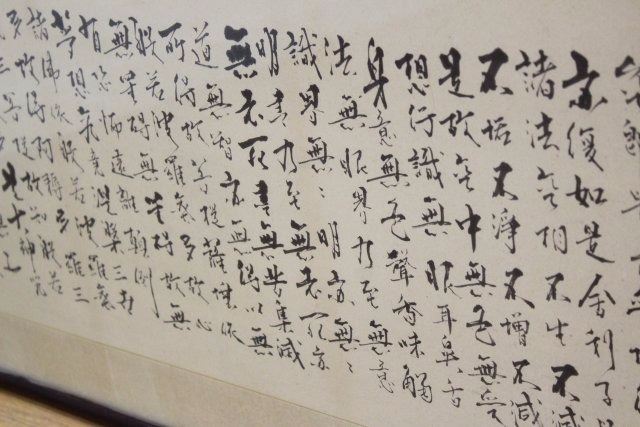 亦復如是舍利子是
諸法空相不生不滅
不垢不淨不增不減
是故空中無色無受
想行識無眼耳鼻舌
身意無色聲香味觸
法無眼界乃至無意
識界無〻明亦無〻
明盡乃至無老死亦
無老死盡無苦集滅
道無智亦無得以無
所得故菩提薩埵依
般若波羅蜜多故心
無罣礙無罣礙故無
有恐怖遠離顛倒
夢想究竟涅槃三世
諸佛依般若波羅蜜
多故得阿耨多羅三
三菩提故知般若
是大神咒